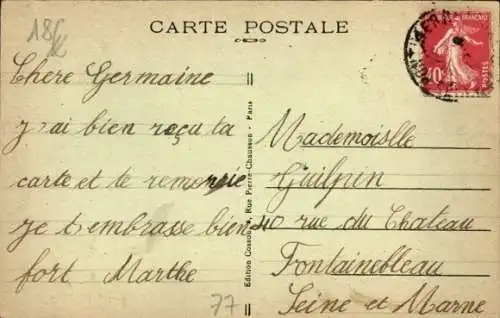 18f
CARTE POSTALE
Chere Germaine
j'ai bien reçu ta
carte et te remercie
je t embrasse bien
fort Marthe
77
Edition Rue Pierre-Chausson - Paris
FRANÇAISE
10c
POSTES
Mademoislle
Guilpin
40 rue du Chateau
Fontainebleau
Seine et Marne